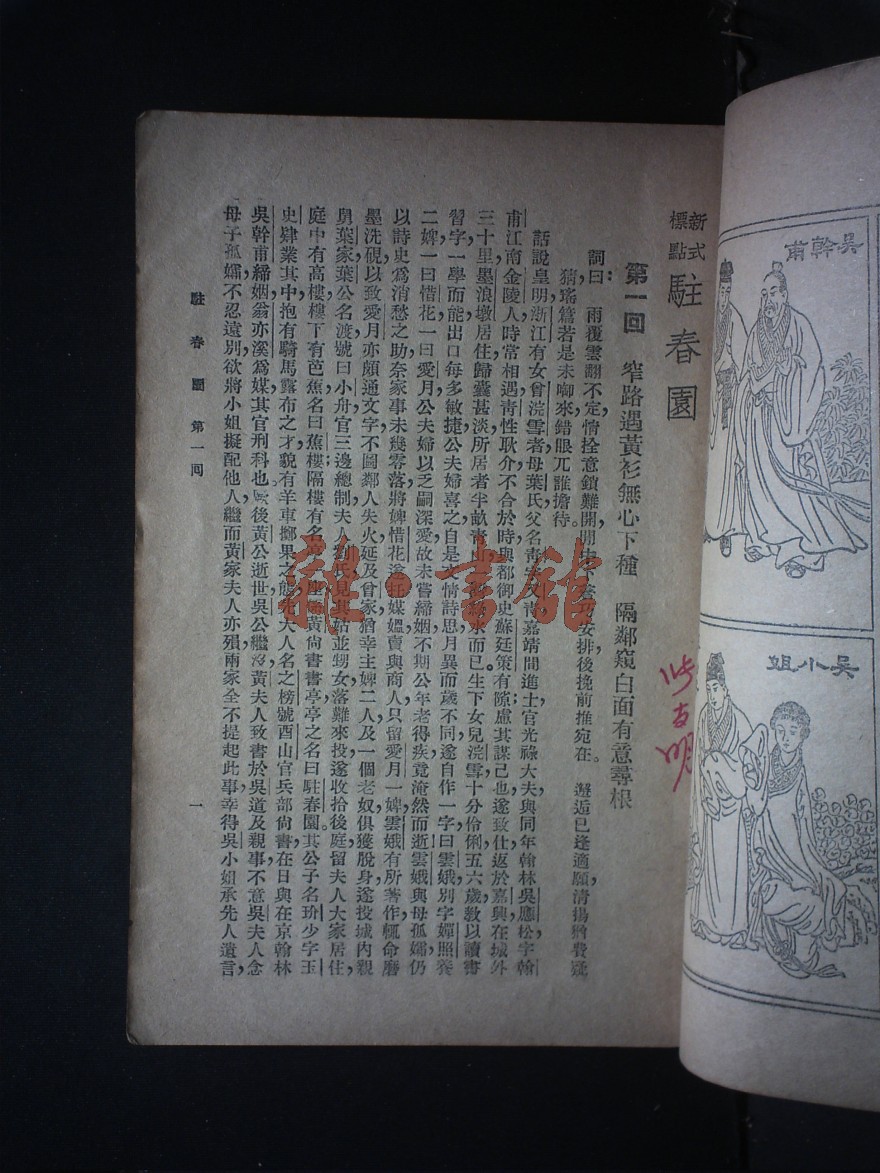 吳幹甫
吳小姐
新式標點
駐春園
第一回 窄路遇黃衫無心下種 隔鄰窺白面有意尋根
詞曰:雨覆雲翻不定,情拴意鎖難開,閒中下著巧安排,後挽前推宛在。 邂逅已逢適願,清揚猶費疑
猜,瑤簪若是未啣來,錯眼兀誰擔待。
話說皇明浙江有女曾浣雪者,母葉氏,父名青,字,青嘉靖間進士,官光祿大夫,與同年翰林吳應松,字幹
甫,江南金陵人,時常相遇,青性耿介,不合於時,與都御史蘇廷策有隙;慮其謀己也,遂致仕返於嘉興,在城外
三十里墨浪墩居住,歸囊甚淡,所居者半畝青山,綠水而已。生下女兒浣雪,十分伶俐,五六歲教以讀書
習字,一學而能,出口每多敏捷,公夫婦喜之,自是文情詩思,月異而歲不同,遂自作一字曰雲娥,別字嬋照,養
二婢,一曰惜花,一曰愛月,公夫婦以乏嗣,深愛,故未嘗締姻,不期公年老得疾,竟淹然而逝,雲娥與母孤孀,仍
以詩史爲消愁之助,奈家事未幾零落,將婢惜花,遂托媒媼賣與商人,只留愛月一婢,雲娥有所著作,輒命磨
墨洗硯,以致愛月亦頗通文字,不圖鄰人失火,延及曾家,猶幸主婢二人及一個老奴,俱獲脫身,遂投城內親
舅葉家,葉公名渡,號曰小舟,官三邊總制,夫人劉氏,見其姑並甥女落難來投,遂收拾後庭,留夫人大家居住,
庭中有高樓,樓下有芭蕉,名曰蕉樓;隔樓有名 座,係黃尚書書亭,亭之名曰駐春園。其公子名玠,少字玉
史,肄業其中,抱有騎馬露布之才,貌有羊車擲果之態,先大人名之榜,號酉山,官兵部尚書,在日與在京翰林
吳幹甫締姻,翁亦溪爲媒,其官刑科也。後黃公逝世,吳公繼沒,黃夫人致書於吳,道及親事,不意吳夫人念
母子孤孀,不忍遠別,欲將小姐擬配他人,繼而黃家夫人亦殞,兩家全不提起此事,幸得吳小姐承先人遺言,
駐春園 第一回 一
雜·書館